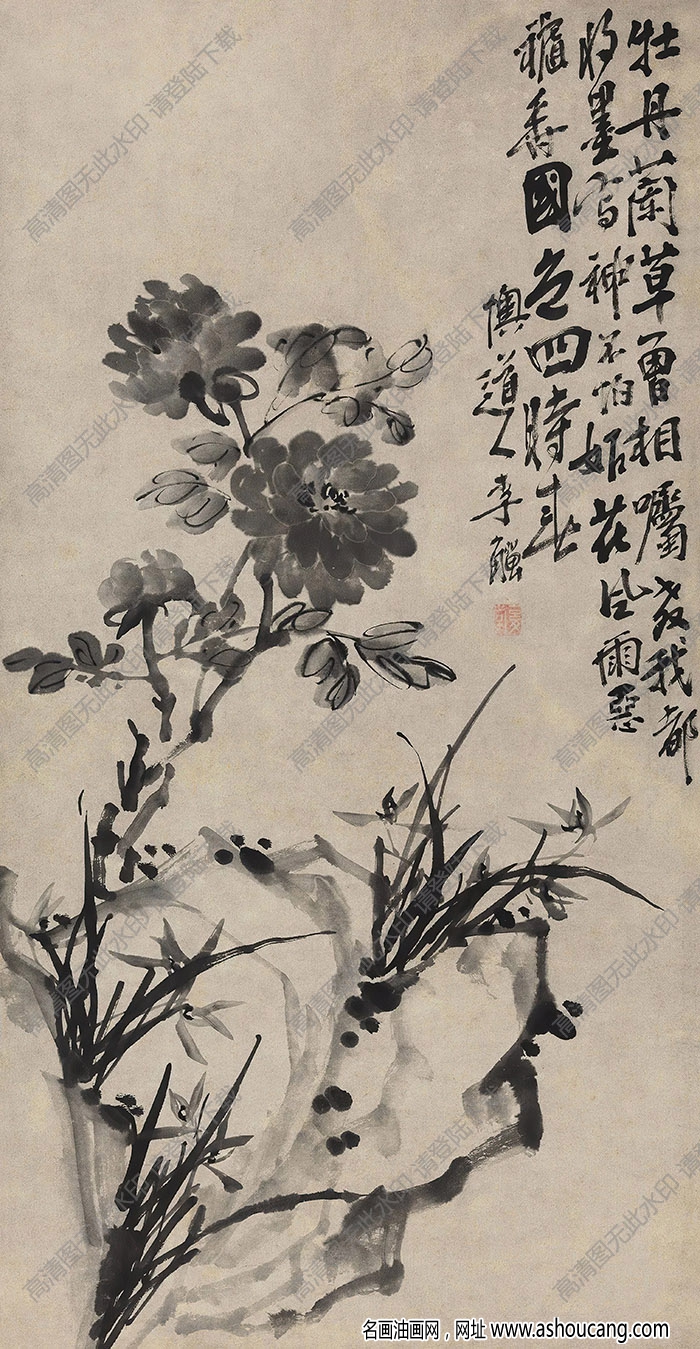 牡丹蘭草曾相囑教我都
将墨寫神不怕妬花風雨惡
穠香國色四時春
懊道人李鱓
高清图无此水印 请登陆下载
名画油画网，网址 www.ashoucang.com